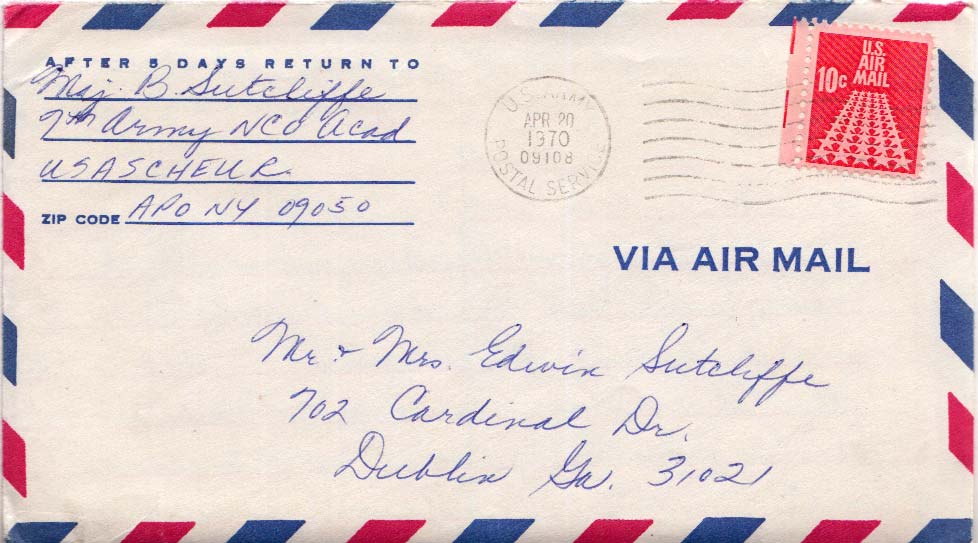 AFTER 5 DAYS RETURN TO
Maj. B Sutcliffe
7th Army NCO Acad
USASCHEUR
ZIP CODE APO NY 09050
U.S. ARMY
APR 20
1970
09108
POSTAL SERVICE
U.S.
AIR
MAIL
10c
VIA AIR MAIL
Mr + Mrs. Edwin Sutcliffe
702 Cardinal Dr.
Dublin Ga. 31021